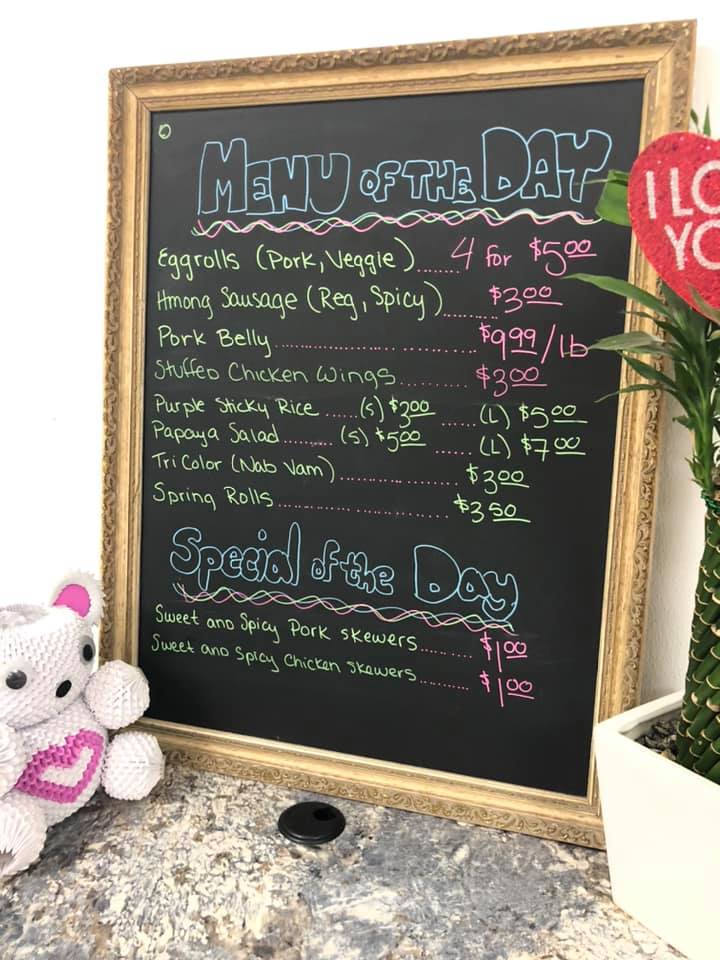 MENU OF THE DAY
Eggrolls (Pork, Veggie).......4 for $5.00
Hmong Sausage (Reg, Spicy)..........$3.00
Pork Belly..............................$9.99/lb
Stuffed Chicken Wings...........$3.00
Purple Sticky Rice......(S) $3.00......(L) $5.00
Papaya Salad.........(S) $5.00......(L) $7.00
Tri Color (Nab Vam)....................$3.00
Spring Rolls..............................$3.50
Special of the Day
Sweet and Spicy Pork Skewers.........$1.00
Sweet and Spicy Chicken Skewers.........$1.00
I LO
YO